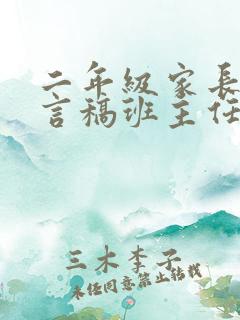 二年级家长
言稿班主任
三木李子
未经同意禁止转载